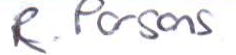 R. Parsons